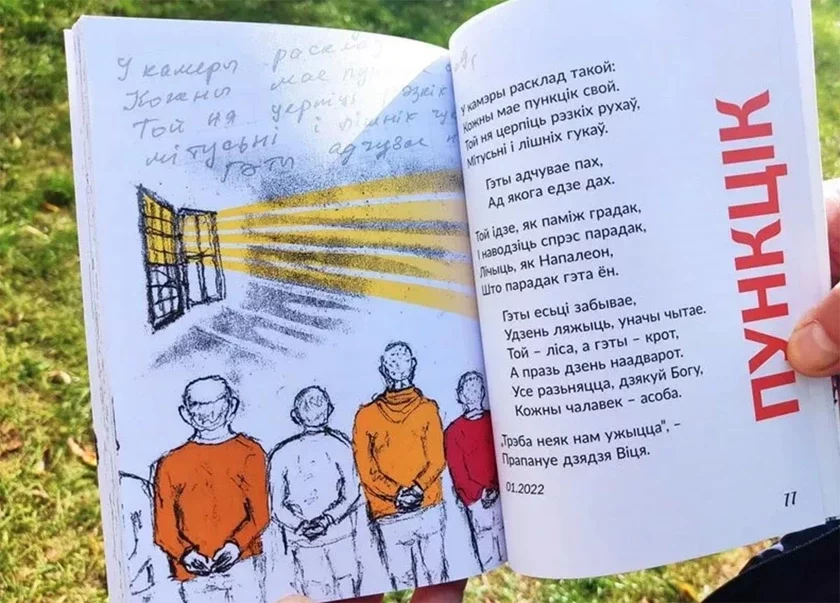 У камеры расклад
Кожны мае
Той ня церпіць рэзкіх
мітусьні і лішніх
Гэты адчувае
У камэры расклад такой:
Кожны мае пункцік свой.
Той ня церпіць рэзкіх рухаў,
Мітусьні і лішніх гукаў.
Гэты адчувае пах,
Ад якога едзе дах.
Той ідзе, як паміж градак,
І наводзіць спрэс парадак,
Лічыць, як Напалеон,
Што парадак гэта ён.
Гэты есьці забывае,
Удзень ляжыць, уначы чытае.
Той – ліса, а гэты – крот,
А празь дзень наадварот.
Усе разьняцца, дзякуй Богу,
Кожны чалавек – асоба.
„Трэба неяк нам ужыцца", –
Прапануе дзядзя Віця.
01.2022
ПУНКЦІК
77